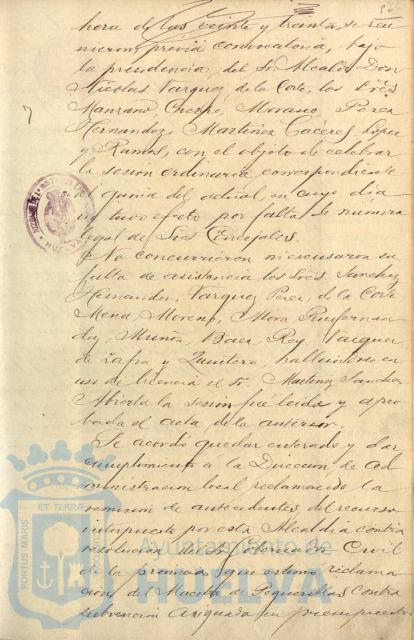 hora de las veinte y treinta, se reu
nieron, previa convocatoria, bajo
la presidencia, del Sr. Alcalde Don
Nicolas Vazquez de la Corte, los Sres
Manzano Crespo, Morano, Perez
Hernandez, Martinez Caceres, Lopez
y Ramos, con el objeto de celebrar
la sesion ordinaria correspondiente
del actual, en cuyo dia
no tuvo efecto por falta de numero
legal de Sres Concejales.
No concurrieron ni escusaron su
falta de asistencia los Sres. Sanchez
Hernandez, Vazquez Perez, de la Corte
Mena, Moreno, Mora, 
Muñoz, Baez Rey, Vazquez
de Zafra y Quintero, hallandose en
uso de licencia el Sr. Martinez Sanchez
Abierta la sesion fué leida y apro
bada el acta de la anterior.
Se acordó quedar enterado y dar
cumplimiento a la Direccion de ad
ministracion local reclamando la
remision de antecedentes del recurso
interpuesto por esta Alcaldia contra
resolucion del Sr Gobernador Civil
de la provincia que estimó reclama
cion del Maestro de Peguerillas contra
subvencion asignada en presupuesto
PORTUS MARIS ET TERRAE
Ayuntamiento de
HUELVA